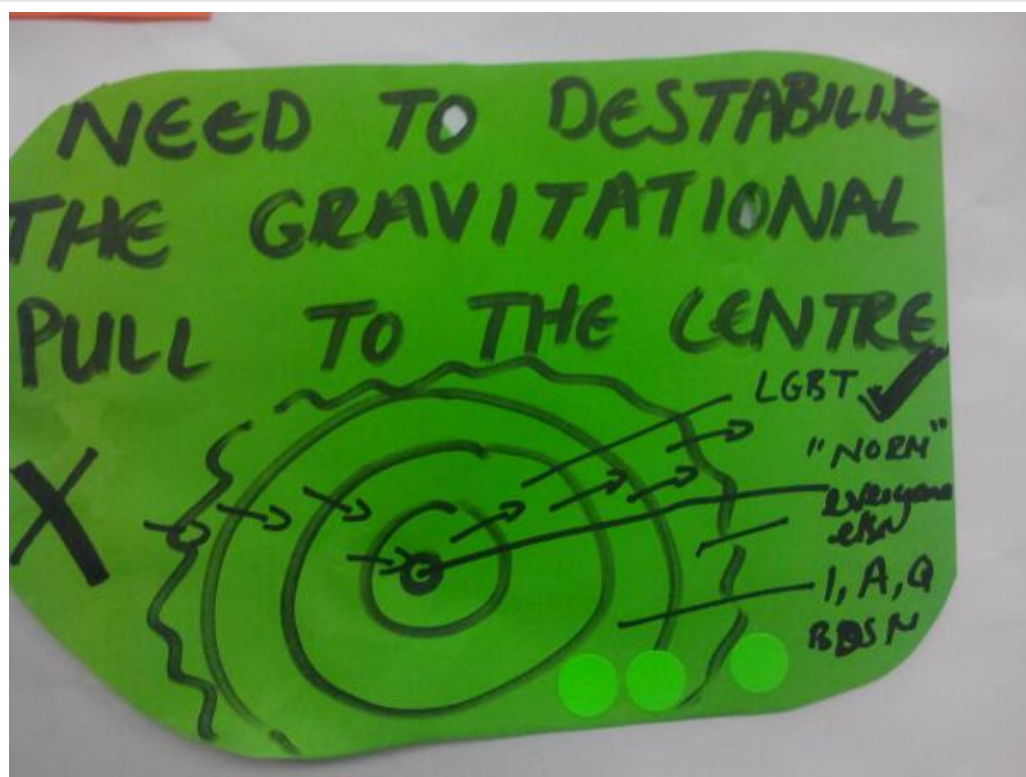 NEED TO DESTABILISE
THE GRAVITATIONAL
PULL TO THE CENTRE
LGBT ✓
"NORM"
X
everyone
else
I, A, Q
BDSM